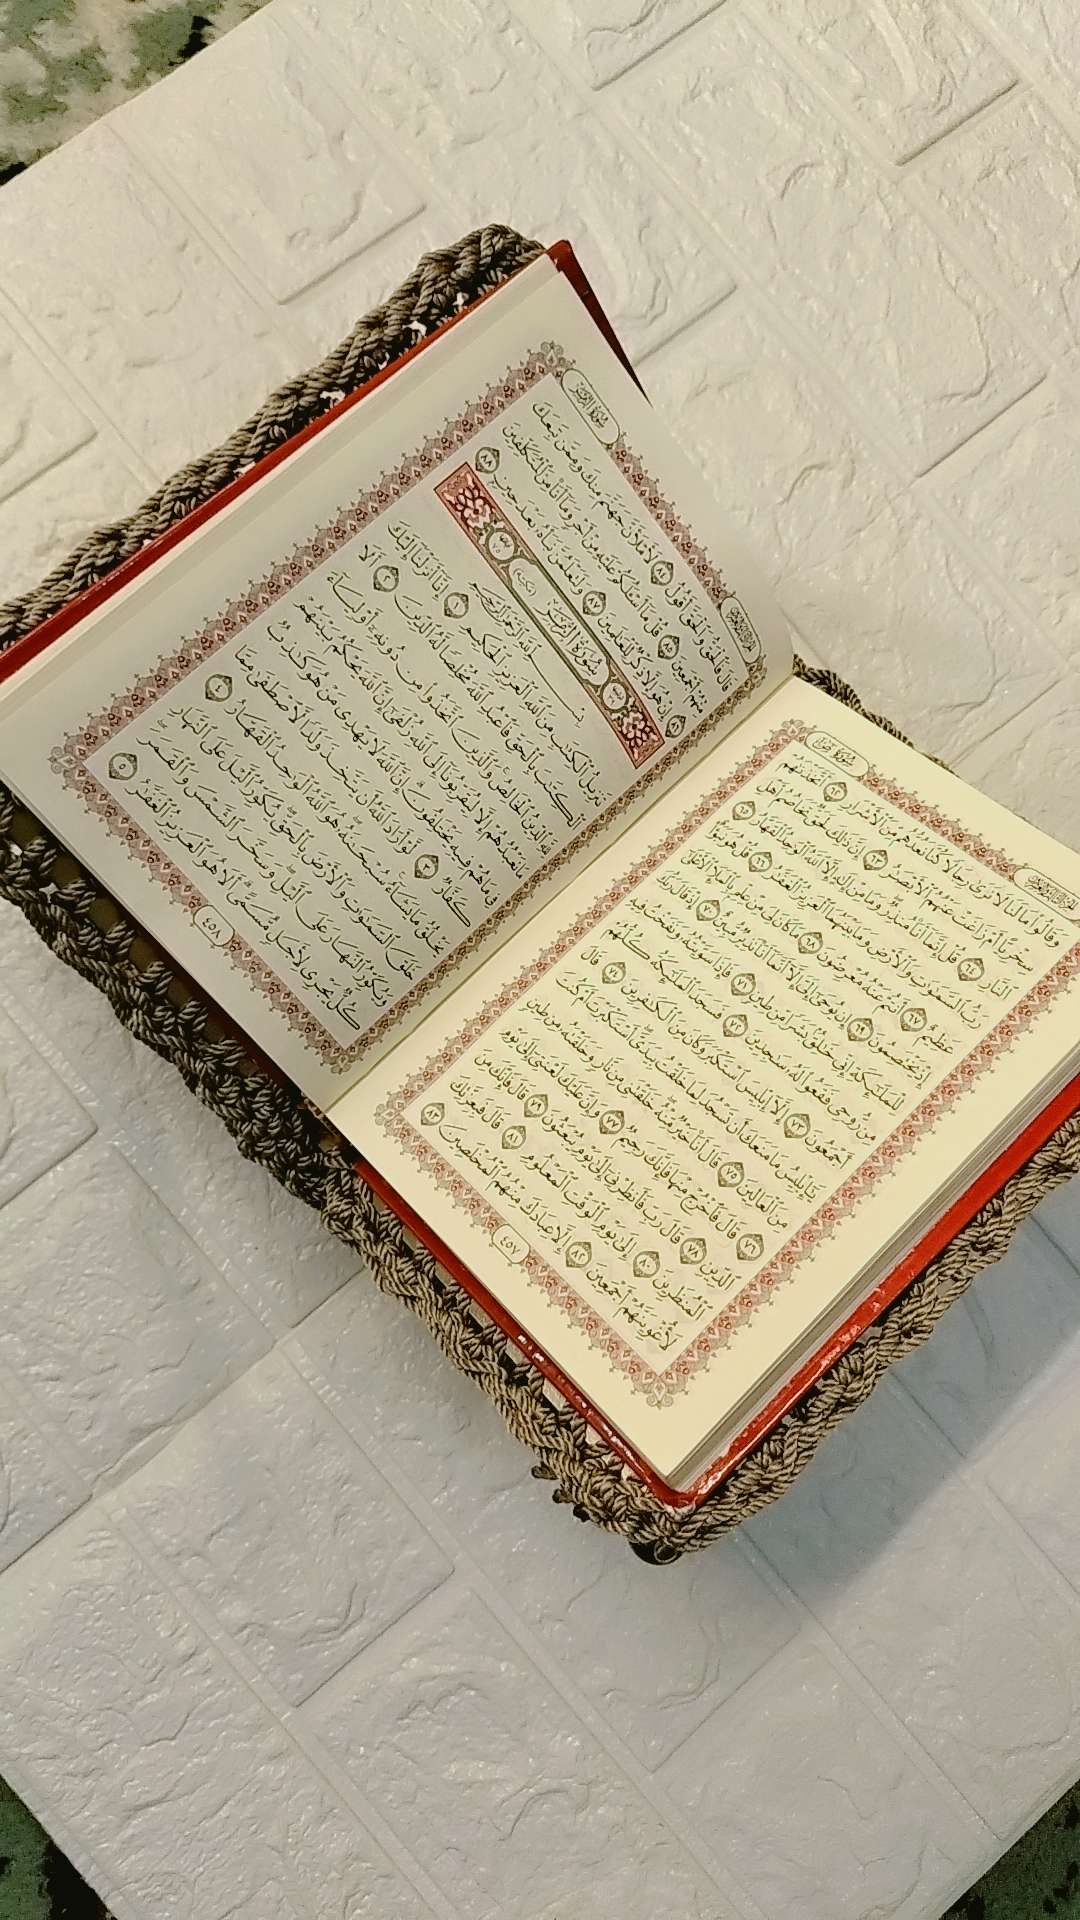 الجزء الثالث والعشرون سُورَةُ صٓ
وَقَالُوا۟ مَا لَنَا لَا نَرَىٰ رِجَالًا كُنَّا نَعُدُّهُم مِّنَ ٱلْأَشْرَارِ ٦٢ أَتَّخَذْنَٰهُمْ
سِخْرِيًّا أَمْ زَاغَتْ عَنْهُمُ ٱلْأَبْصَٰرُ ٦٣ إِنَّ ذَٰلِكَ لَحَقٌّ تَخَاصُمُ أَهْلِ
ٱلنَّارِ ٦٤ قُلْ إِنَّمَآ أَنَا۠ مُنذِرٌ وَمَا مِنْ إِلَٰهٍ إِلَّا ٱللَّهُ ٱلْوَٰحِدُ ٱلْقَهَّارُ ٦٥
رَبُّ ٱلسَّمَٰوَٰتِ وَٱلْأَرْضِ وَمَا بَيْنَهُمَا ٱلْعَزِيزُ ٱلْغَفَّٰرُ ٦٦ قُلْ هُوَ نَبَؤٌا۟
عَظِيمٌ ٦٧ أَنتُمْ عَنْهُ مُعْرِضُونَ ٦٨ مَا كَانَ لِىَ مِنْ عِلْمٍۭ بِٱلْمَلَإِ ٱلْأَعْلَىٰٓ
إِذْ يَخْتَصِمُونَ ٦٩ إِن يُوحَىٰٓ إِلَىَّ إِلَّآ أَنَّمَآ أَنَا۠ نَذِيرٌ مُّبِينٌ ٧٠ إِذْ قَالَ رَبُّكَ
لِلْمَلَٰٓئِكَةِ إِنِّى خَٰلِقٌۢ بَشَرًا مِّن طِينٍ ٧١ فَإِذَا سَوَّيْتُهُۥ وَنَفَخْتُ فِيهِ
مِن رُّوحِى فَقَعُوا۟ لَهُۥ سَٰجِدِينَ ٧٢ فَسَجَدَ ٱلْمَلَٰٓئِكَةُ كُلُّهُمْ
أَجْمَعُونَ ٧٣ إِلَّآ إِبْلِيسَ ٱسْتَكْبَرَ وَكَانَ مِنَ ٱلْكَٰفِرِينَ ٧٤ قَالَ
يَٰٓإِبْلِيسُ مَا مَنَعَكَ أَن تَسْجُدَ لِمَا خَلَقْتُ بِيَدَىَّ أَسْتَكْبَرْتَ أَمْ كُنتَ
مِنَ ٱلْعَالِينَ ٧٥ قَالَ أَنَا۠ خَيْرٌ مِّنْهُ خَلَقْتَنِى مِن نَّارٍ وَخَلَقْتَهُۥ مِن طِينٍ
٧٦ قَالَ فَٱخْرُجْ مِنْهَا فَإِنَّكَ رَجِيمٌ ٧٧ وَإِنَّ عَلَيْكَ لَعْنَتِىٓ إِلَىٰ يَوْمِ
ٱلدِّينِ ٧٨ قَالَ رَبِّ فَأَنظِرْنِىٓ إِلَىٰ يَوْمِ يُبْعَثُونَ ٧٩ قَالَ فَإِنَّكَ مِنَ
ٱلْمُنظَرِينَ ٨٠ إِلَىٰ يَوْمِ ٱلْوَقْتِ ٱلْمَعْلُومِ ٨١ قَالَ فَبِعِزَّتِكَ
لَأُغْوِيَنَّهُمْ أَجْمَعِينَ ٨٢ إِلَّا عِبَادَكَ مِنْهُمُ ٱلْمُخْلَصِينَ ٨٣
٤٥٧
الجزء الثالث والعشرون سُورَةُ الزُّمَرِ
قَالَ فَٱلْحَقُّ وَٱلْحَقَّ أَقُولُ ٨٤ لَأَمْلَأَنَّ جَهَنَّمَ مِنكَ وَمِمَّن تَبِعَكَ
مِنْهُمْ أَجْمَعِينَ ٨٥ قُلْ مَآ أَسْـَٔلُكُمْ عَلَيْهِ مِنْ أَجْرٍ وَمَآ أَنَا۠ مِنَ ٱلْمُتَكَلِّفِينَ
٨٦ إِنْ هُوَ إِلَّا ذِكْرٌ لِّلْعَٰلَمِينَ ٨٧ وَلَتَعْلَمُنَّ نَبَأَهُۥ بَعْدَ حِينٍۭ ٨٨
ترتيبها ٣٩ سُورَةُ الزُّمَرِ (مكية) آياتها ٧٥
بِسْمِ ٱللَّهِ ٱلرَّحْمَٰنِ ٱلرَّحِيمِ
تَنزِيلُ ٱلْكِتَٰبِ مِنَ ٱللَّهِ ٱلْعَزِيزِ ٱلْحَكِيمِ ١ إِنَّآ أَنزَلْنَآ إِلَيْكَ
ٱلْكِتَٰبَ بِٱلْحَقِّ فَٱعْبُدِ ٱللَّهَ مُخْلِصًا لَّهُ ٱلدِّينَ ٢ أَلَا
لِلَّهِ ٱلدِّينُ ٱلْخَالِصُ وَٱلَّذِينَ ٱتَّخَذُوا۟ مِن دُونِهِۦٓ أَوْلِيَآءَ
مَا نَعْبُدُهُمْ إِلَّا لِيُقَرِّبُونَآ إِلَى ٱللَّهِ زُلْفَىٰٓ إِنَّ ٱللَّهَ يَحْكُمُ بَيْنَهُمْ
فِى مَا هُمْ فِيهِ يَخْتَلِفُونَ إِنَّ ٱللَّهَ لَا يَهْدِى مَنْ هُوَ كَٰذِبٌ
كَفَّارٌ ٣ لَّوْ أَرَادَ ٱللَّهُ أَن يَتَّخِذَ وَلَدًا لَّٱصْطَفَىٰ مِمَّا
يَخْلُقُ مَا يَشَآءُ سُبْحَٰنَهُۥ هُوَ ٱللَّهُ ٱلْوَٰحِدُ ٱلْقَهَّارُ ٤
خَلَقَ ٱلسَّمَٰوَٰتِ وَٱلْأَرْضَ بِٱلْحَقِّ يُكَوِّرُ ٱلَّيْلَ عَلَى ٱلنَّهَارِ
وَيُكَوِّرُ ٱلنَّهَارَ عَلَى ٱلَّيْلِ وَسَخَّرَ ٱلشَّمْسَ وَٱلْقَمَرَ
كُلٌّ يَجْرِى لِأَجَلٍ مُّسَمًّى أَلَا هُوَ ٱلْعَزِيزُ ٱلْغَفَّٰرُ ٥
٤٥٨